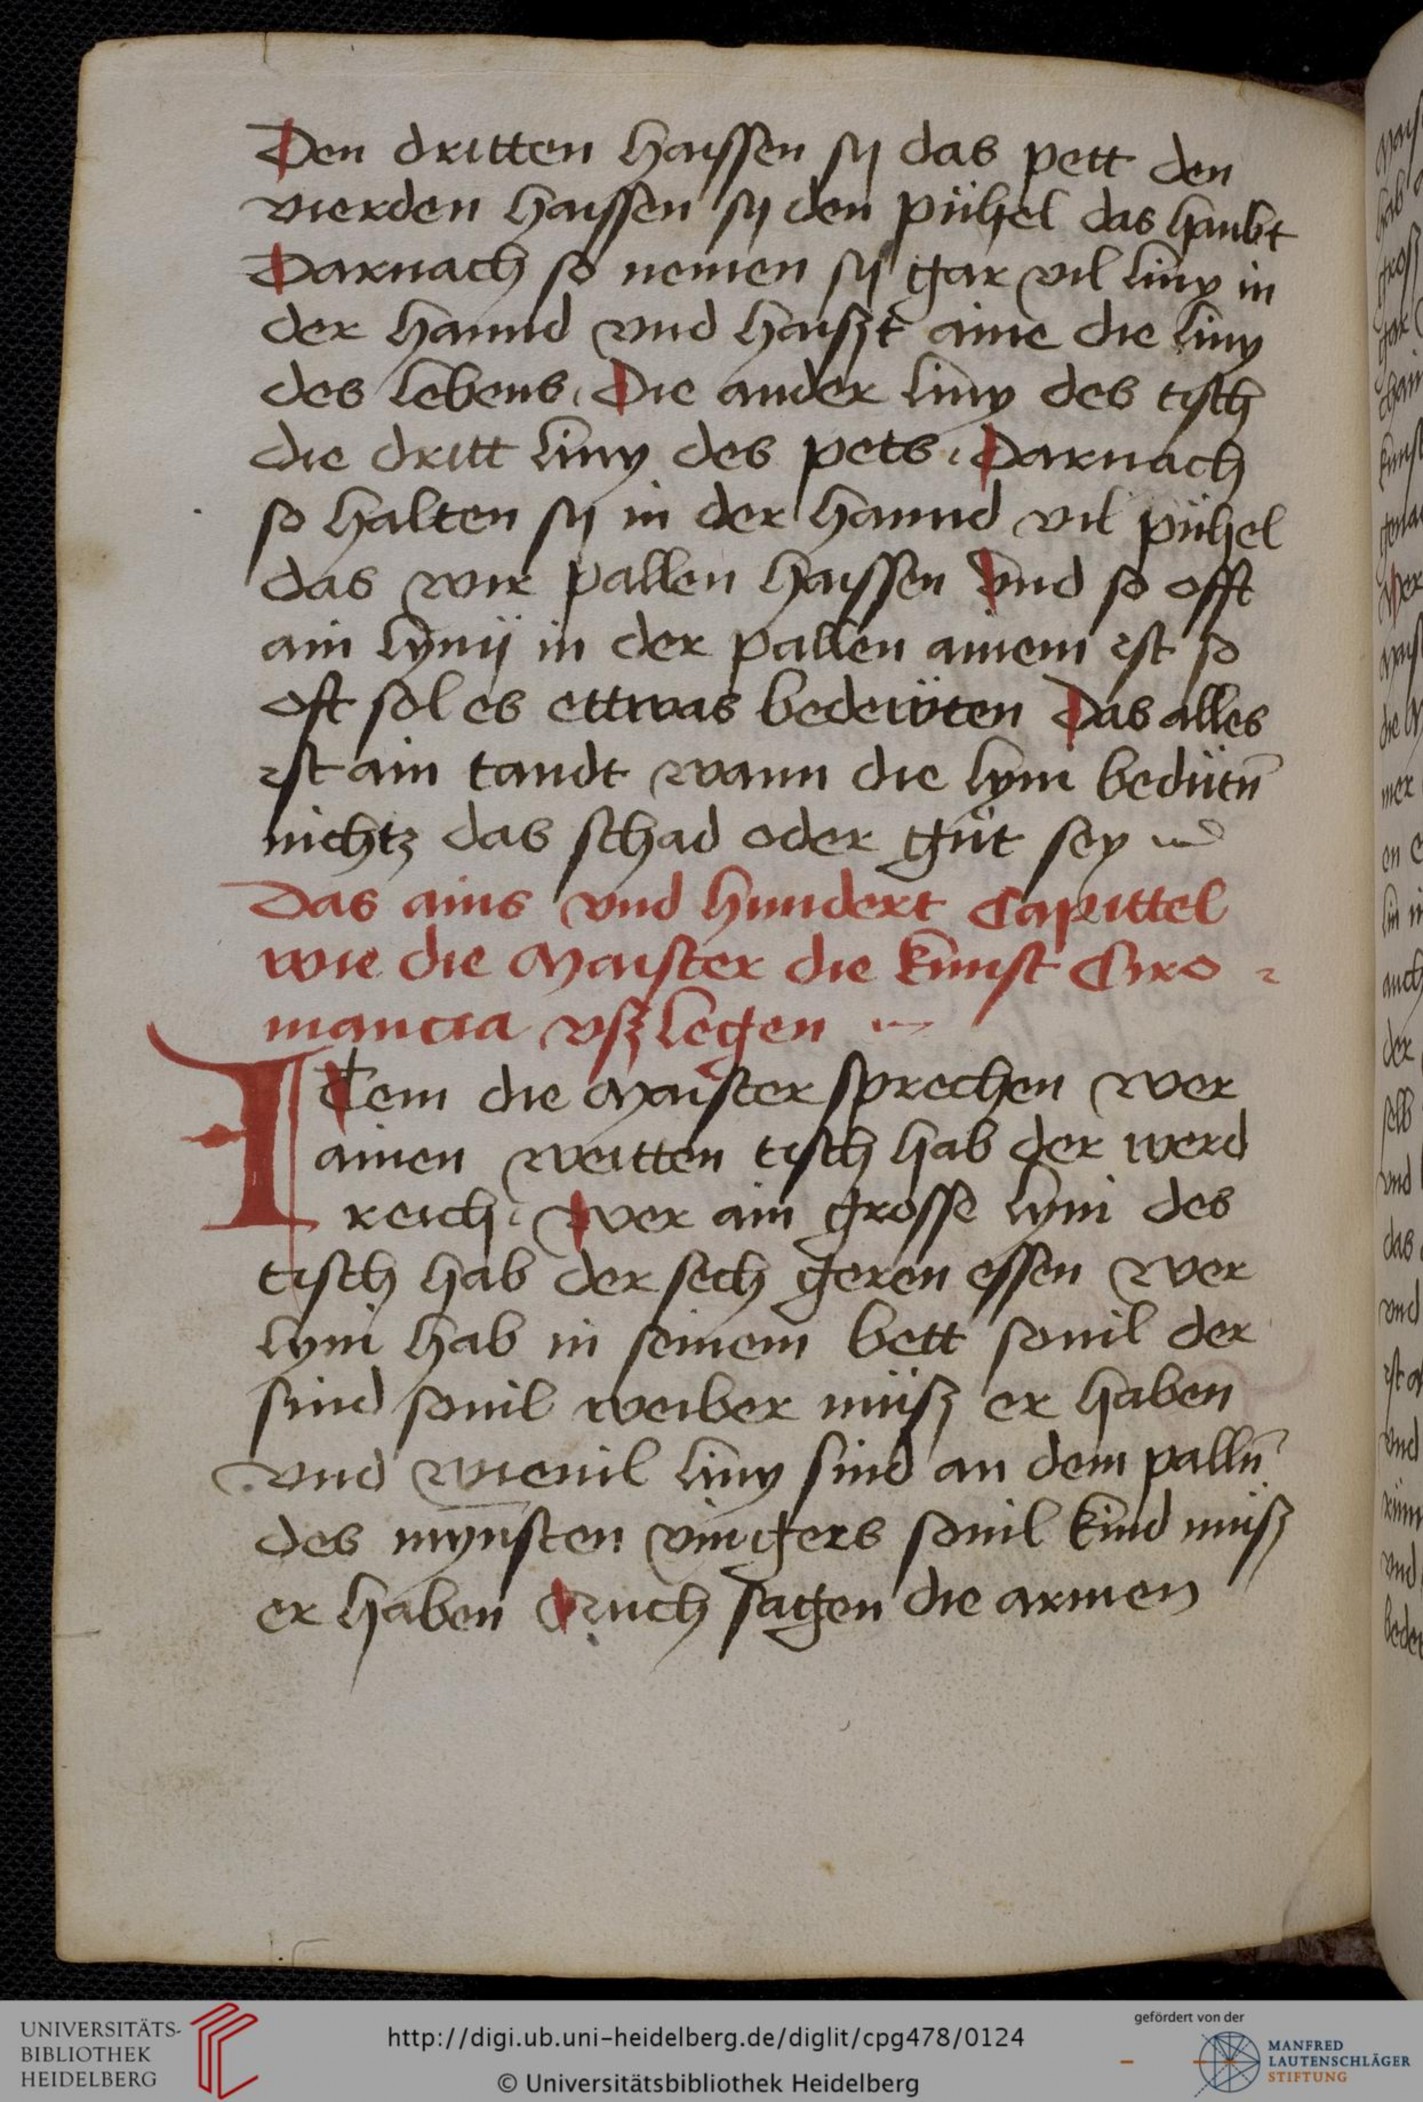 Den dritten haissen sy das pett den
vierden haissen sy den pühel das haubt
Darnach so nemen sy gar vil liny in
der hannd vnd haiszt aine die liny
des lebens. Die ander liny des tisch
die dritt liny des pets. Darnach
so halten sy in der hannd vil pühel
das wir pallen haissen Vnd so offt
ain lynij in der pallen ainem ist so
oft sol es ettwas bedeuten Das alles
ist ain tandt wann die lyni bedütn̄
nichtz das schad oder güt sey
Das ains vnd hundert Capittel
wie die Maister die kunst Ciro
mancia vsz legen
Item die Maister sprechen wer
ainen weitten tisch hab der werd
reich. Wer ain grosse lyni des
tisch hab der sech geren essen wer
lyni hab in seinem bett souil der
sind souil weiber müsz er haben
vnd wieuil liny sind an dem palln̄
des mynsten vingers souil kind müsz
er haben Auch sagen die armen
UNIVERSITÄTS-
BIBLIOTHEK
HEIDELBERG
http://digi.ub.uni-heidelberg.de/diglit/cpg478/0124
© Universitätsbibliothek Heidelberg
gefördert von der
MANFRED
LAUTENSCHLÄGER
STIFTUNG